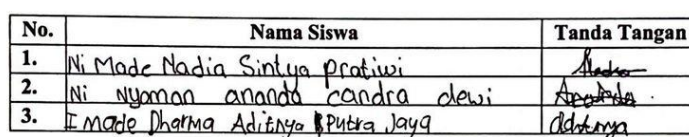 No. Nama Siswa Tanda Tangan
1. Ni Made Nadia Sintya pratiwi
2. Ni Nyoman ananda candra dewi
3. I made Dharma Aditnya Putra Jaya